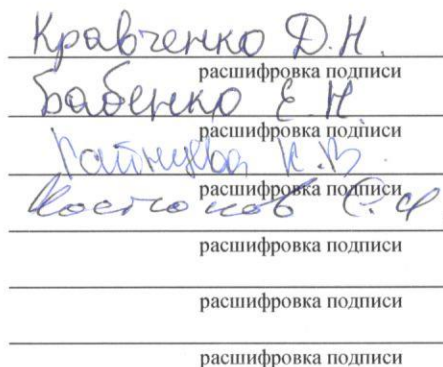 Кравченко Д.Н.
расшифровка подписи
Бабенко Е.Н.
расшифровка подписи
К.В.
расшифровка подписи
расшифровка подписи
расшифровка подписи
расшифровка подписи
расшифровка подписи